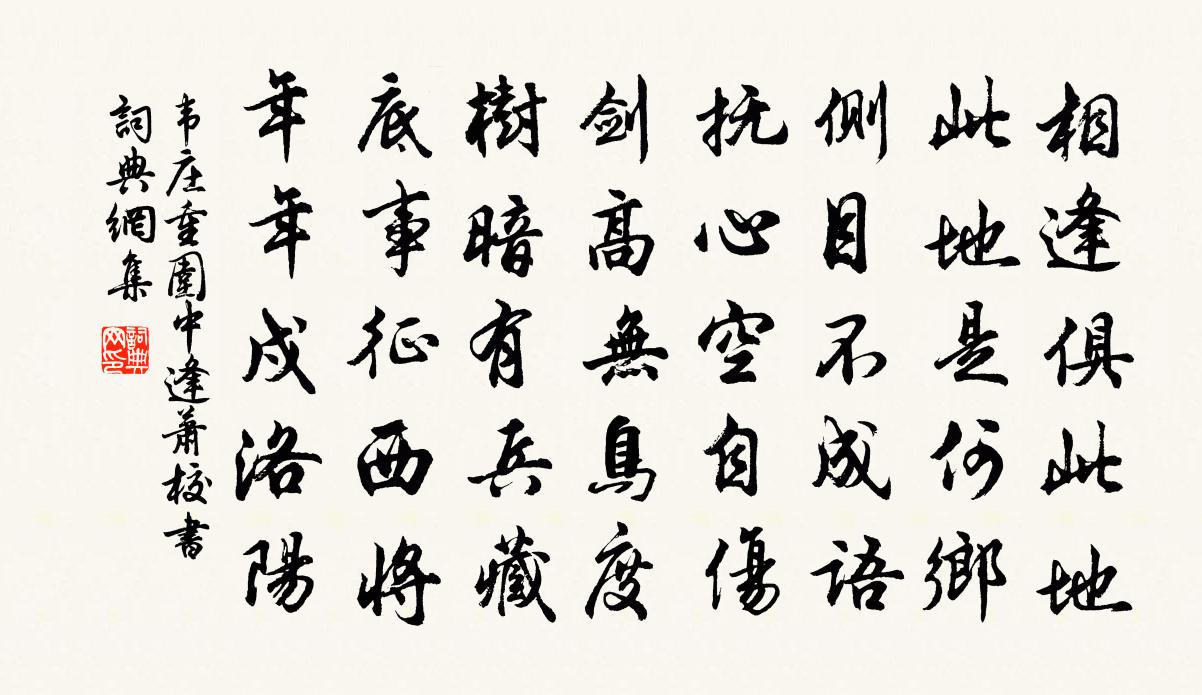 相逢俱此地
此地是何鄉
側目不成語
抚心空自傷
劍高無鳥度
樹暗有兵藏
底事征西將
年年戍洛陽
韦庄重圍中逢蕭校書
詞典網集
詞典
网印